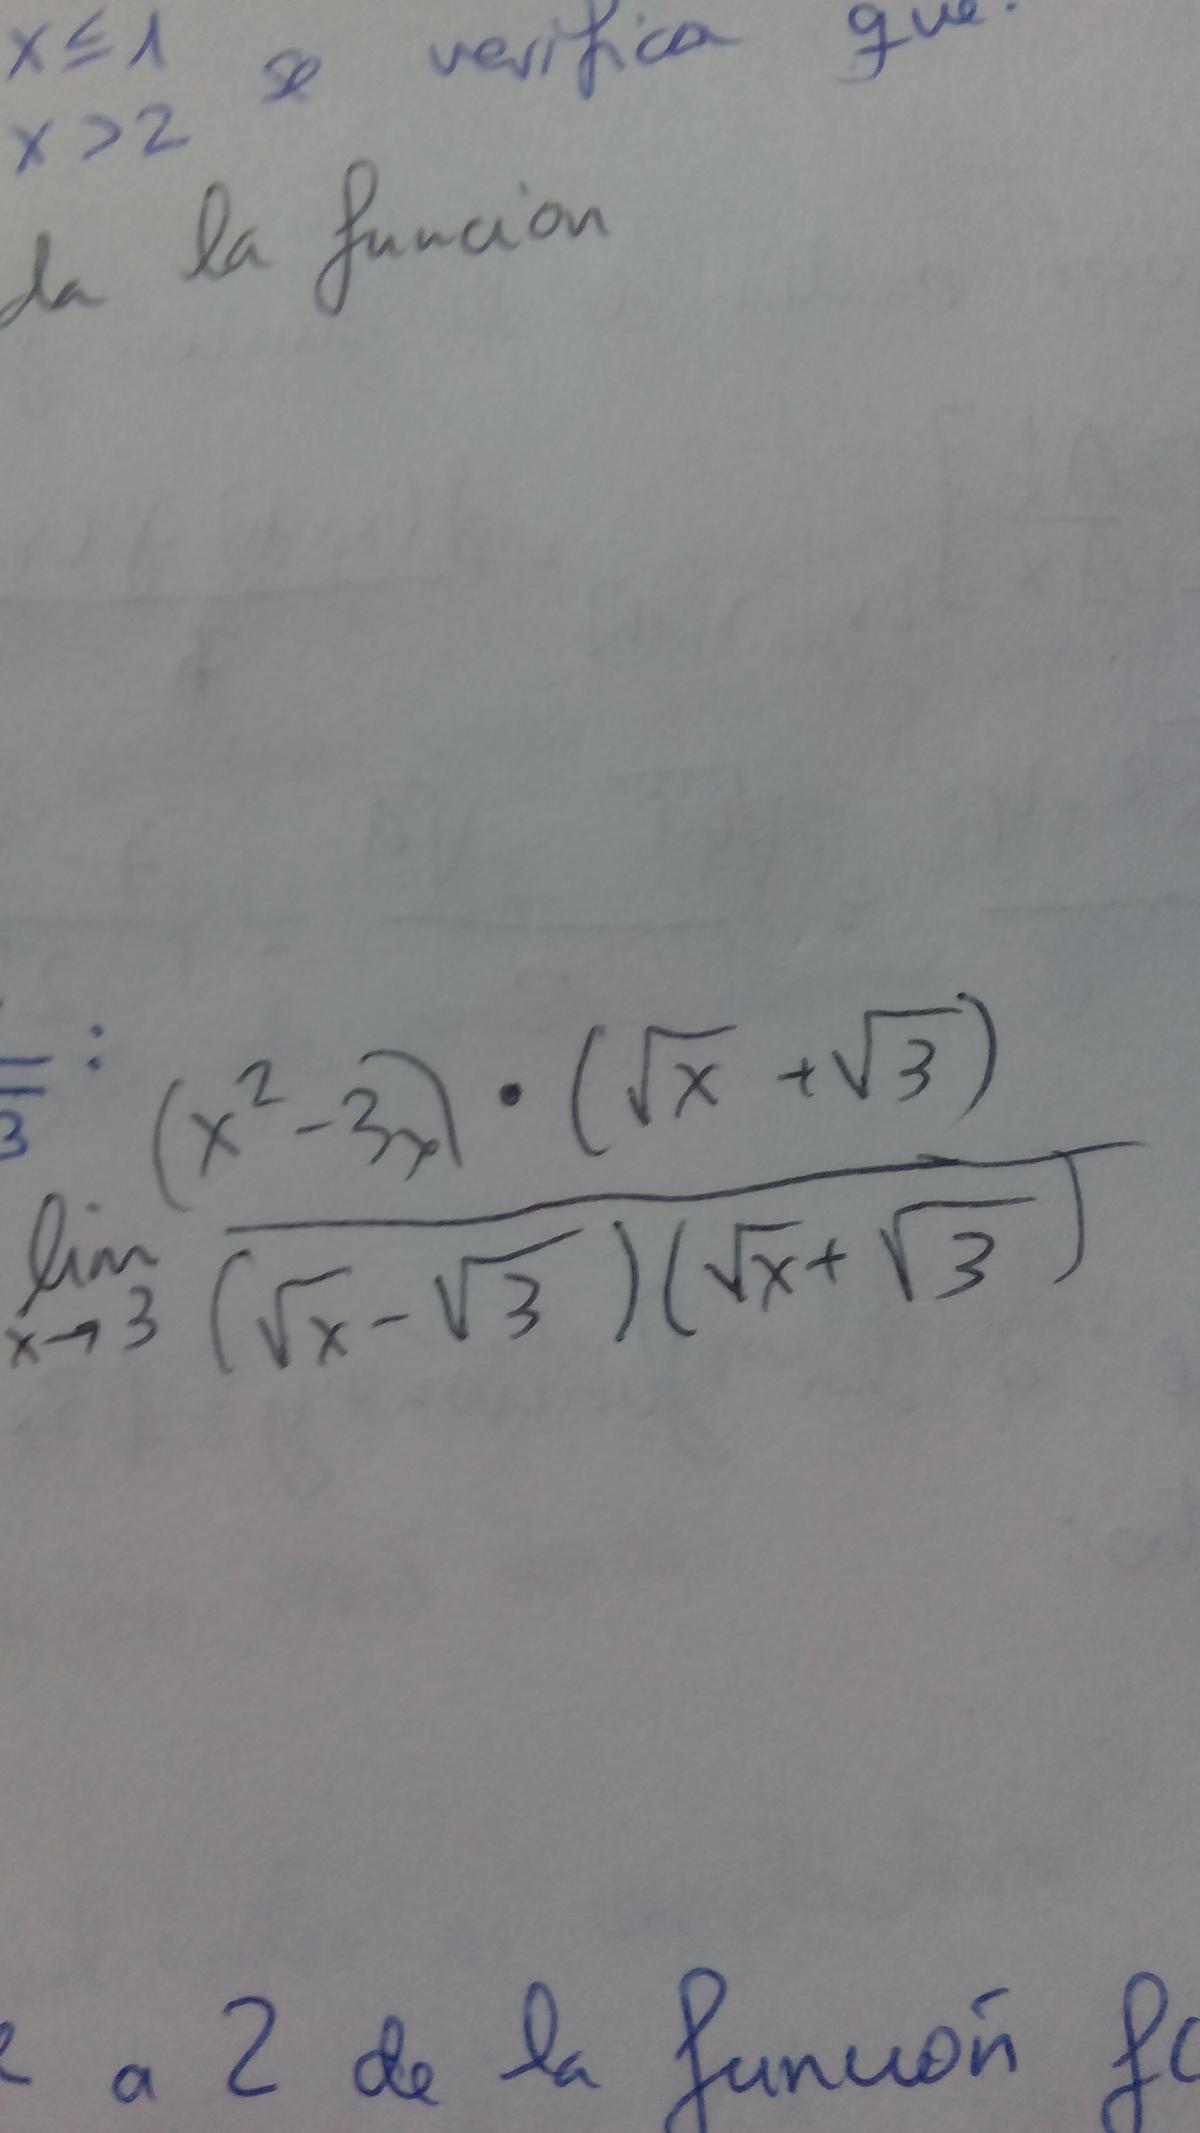 x ≤ 1 se verifica que:
x > 2
da la funcion
3 :
(x² - 3x) · (√x + √3)
lim
x→3 (√x - √3)(√x + √3)
a 2 de la función f(